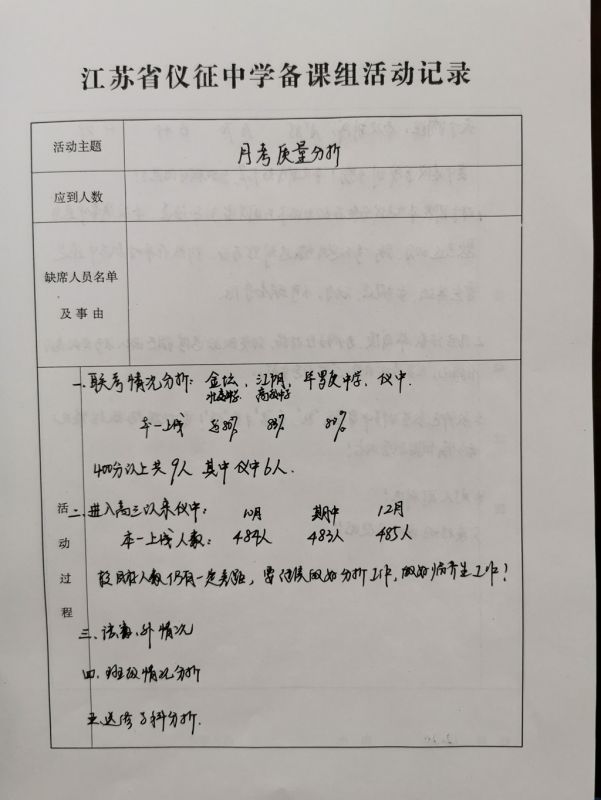 江苏省仪征中学备课组活动记录
活动主题
月考质量分析
应到人数
缺席人员名单
及事由
活动过程
一.联考情况分析: 金坛, 江阴, 中学, 仪中.
高级中学
本一上线 80% 83% 80%
400分以上共9人 其中仪中6人.
二.进入高三以来仪中: 10月 期中 12月
本一上线人数: 484人 483人 485人
较目标人数仍有一定差距, 要继续做好分析工作, 做好临界生工作!
三.语数外情况
四.班级情况分析
五.选修学科分析.